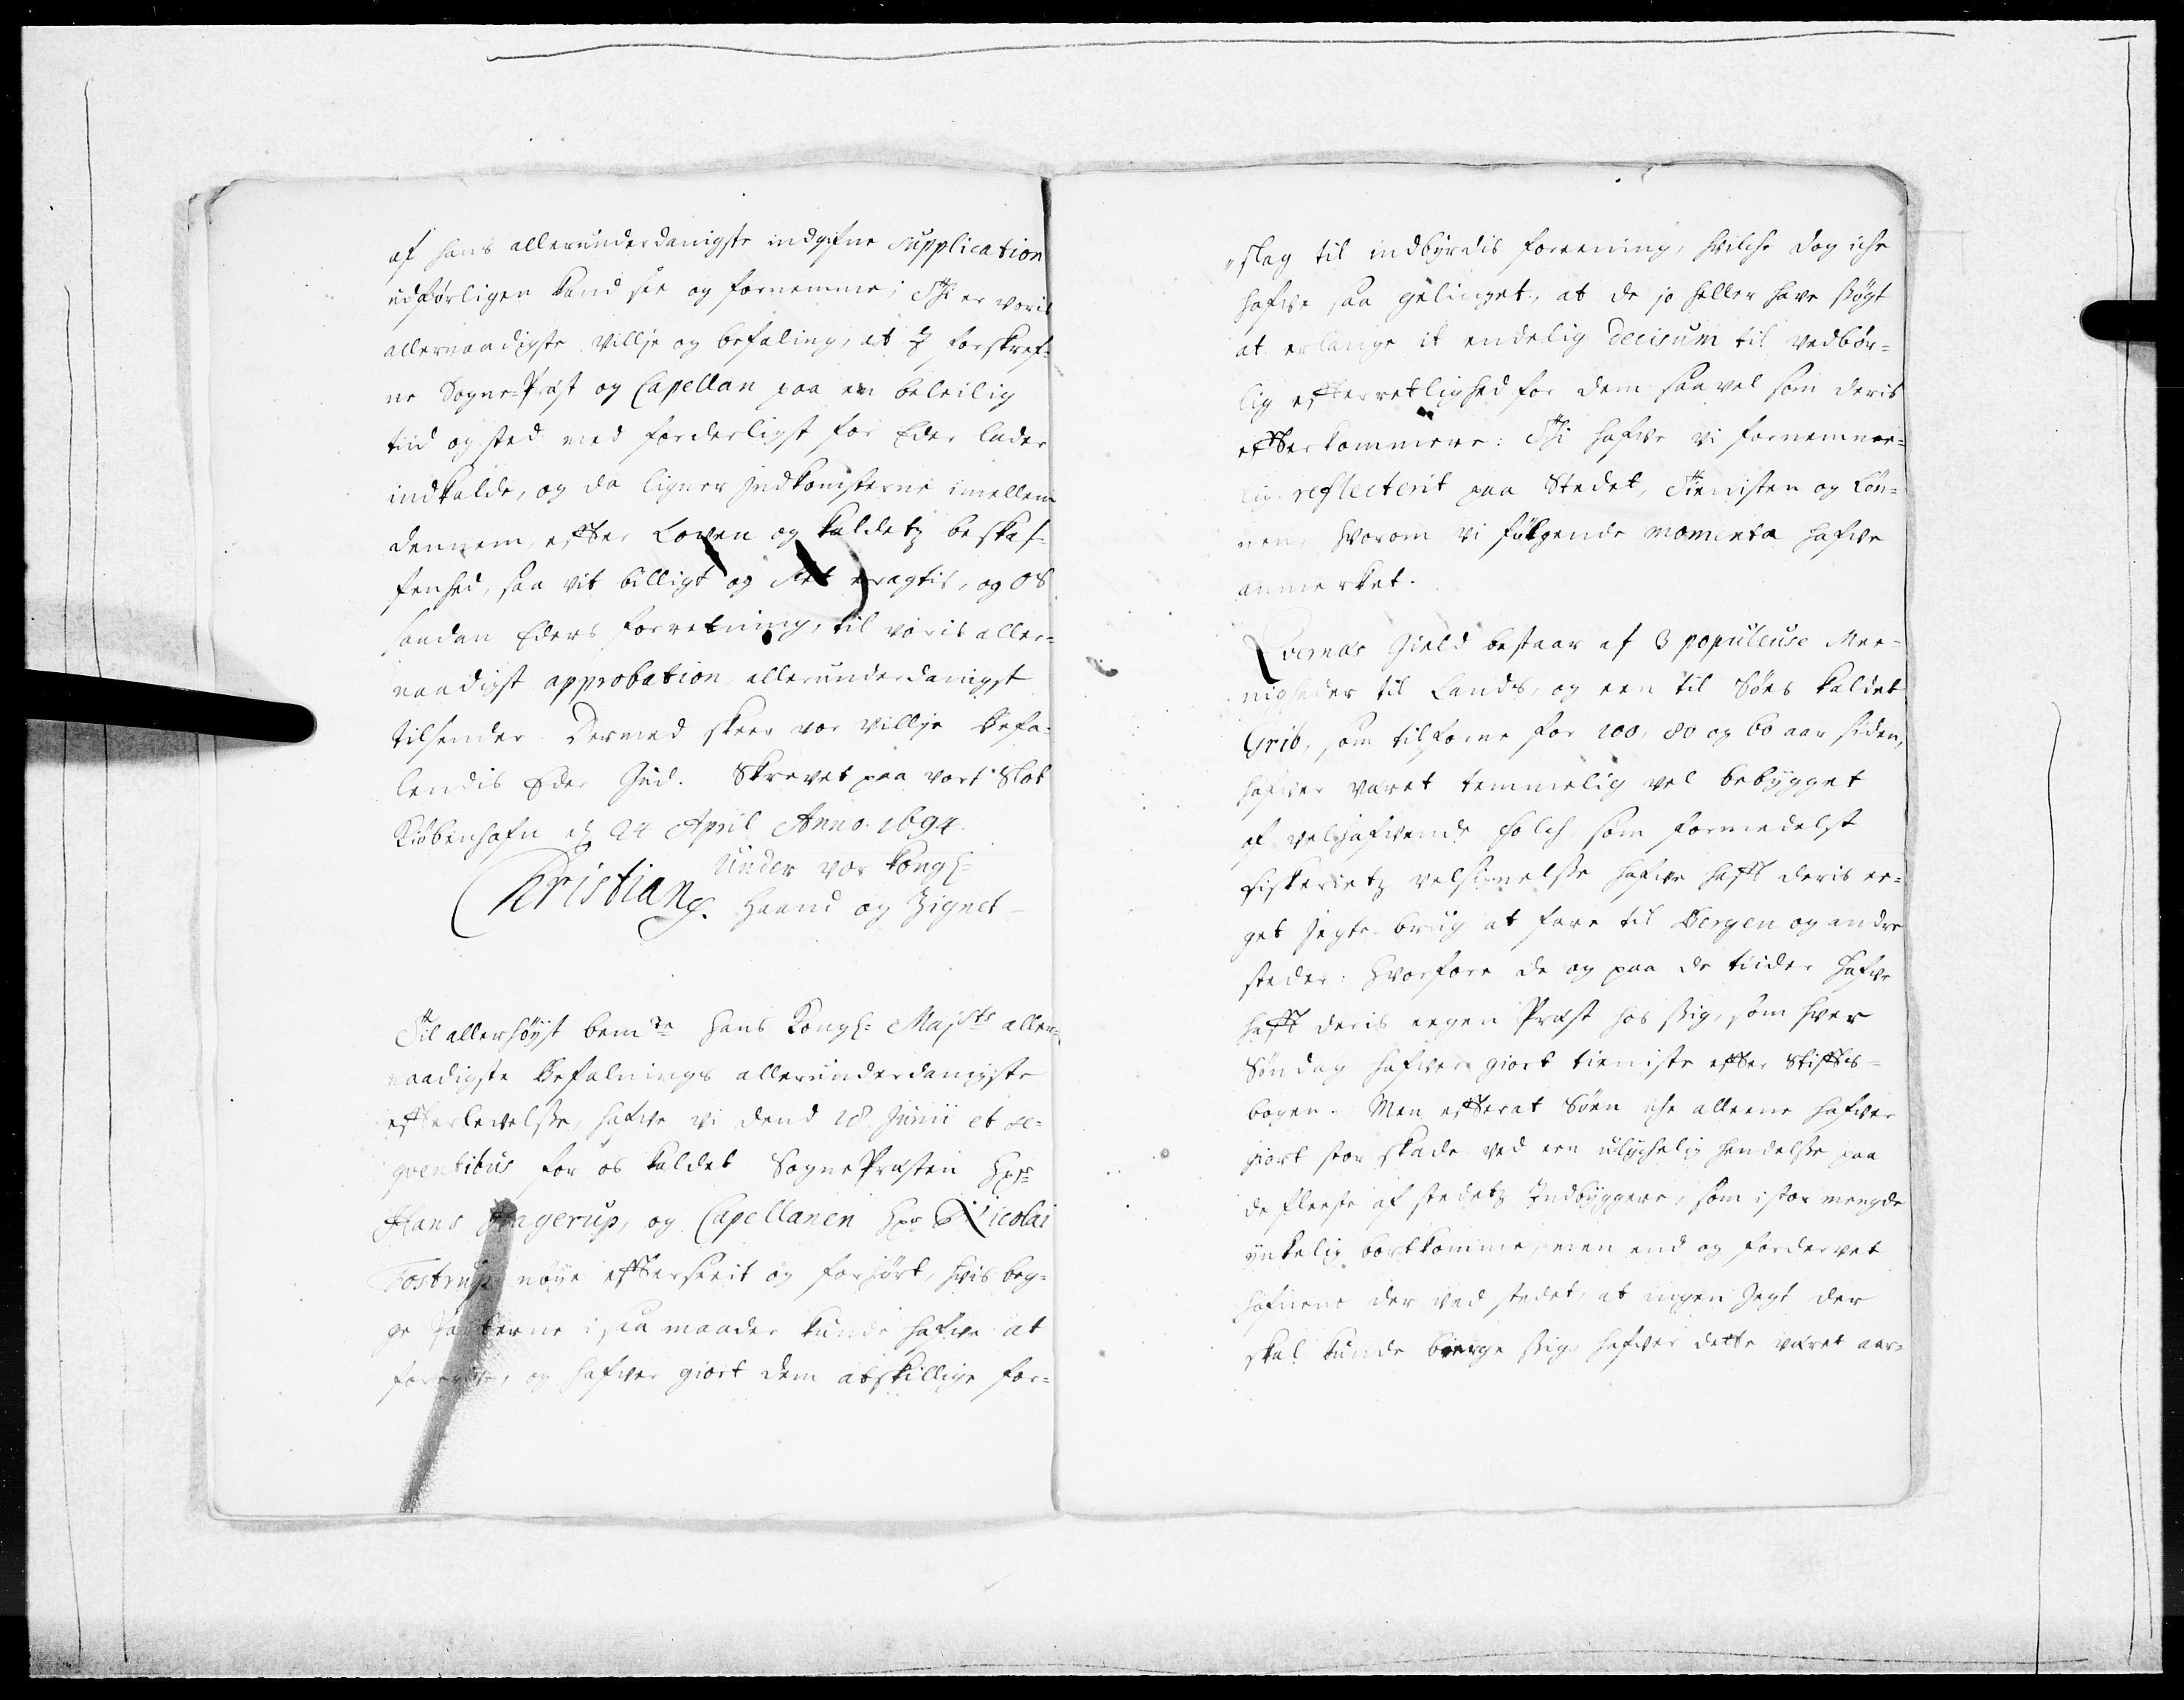 af hans allerunderdanigste indgifne Supplication
udførligen kand see og fornemme; Thi er voris
allernaadigste villje og befaling, at I forskref¬
ne Sogne-Præst og Capellan paa en beleilig
tiid og sted med forderligst for Eder lader
indkalde, og da ligner Indkomsterne imellem
dennem, efter Loven og kaldetz beskaf¬
fenhed, saa vit billigt og ret eragtis, og OS
saadan Eders forretning, til voris aller¬
naadigst approbation allerunderdanigst
tilsender. Dermed skeer vor villje Befa¬
lendis Eder Gud. Skrevet paa vort Slot
Kiøbenhafn d 24 April Anno. 1694.
Under vor Kongl:
Christian. Haand og Zignet
Til allerhøyst bemte Hans Kongl: Majsts aller¬
naadigste Befalnings allerunderdanigste
efterlevelse, hafve vi dend 18 Junii et se¬
qventibus for os kaldet SognePræsten Hr
Hans Hagerup, og Capellanen Hr Nicolai
Tostrup nøye efterseet og forhørt, hvis beg¬
ge Parterne i saa maader kunde hafve at
foregive, og hafver giort dem atskillige for¬
slag til indbyrdis foreening, hvilche dog iche
hafve saa gelinget, at de jo heller have søgt
at erlange it endelig decisum til vedbør¬
lig efterretlighed for dem saavel som deris
efterkommere: Thi hafve vi fornemme¬
lig reflecterit paa Stedet, Tienisten og Løn¬
nen, hvorom vi følgende momenta hafve
anmerket.
Qvernæs Gield bestaar af 3 populeuse Mee¬
nigheder til Lands, og een til Søes kaldet
Grib, som tilforne for 100, 80 og 60 aar siden,
hafver været temmelig vel bebygget
af velhafvende Folch som formedelst
fiskerietz velsignelse hafve haft deris ee¬
get Jegte-brug at fare til Bergen og andre
steder: Hvorfore de og paa de tiider hafve
haft deris eegen Præst hos sig, som hver
Søndag hafver giort tieniste efter Stifts¬
bogen. Men efterat Søen iche alleene hafver
giort stor skade ved een ulychelig hendelse paa
de fleeste af stedetz Indbyggere, som i stor mengde
ynkelig bortkomme, men end og fordervet
hafnene der ved stedet, at ingen Jegt der
skal kunde bierge sig, hafver dette været aar¬